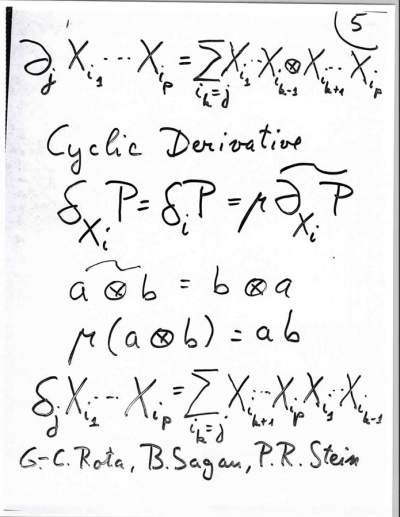 5
∂_j X_{i_1} ··· X_{i_p} = ∑_{i_k=j} X_{i_1} ··· X_{i_{k-1}} ⊗ X_{i_{k+1}} ··· X_{i_p}
Cyclic Derivative
δ_{X_i} P = δ_i P = μ \widetilde{∂_{X_i} P}
\widetilde{a ⊗ b} = b ⊗ a
μ(a ⊗ b) = ab
δ_j X_{i_1} ··· X_{i_p} = ∑_{i_k=j} X_{i_{k+1}} ··· X_{i_p} X_{i_1} ··· X_{i_{k-1}}
G.-C. Rota, B. Sagan, P.R. Stein